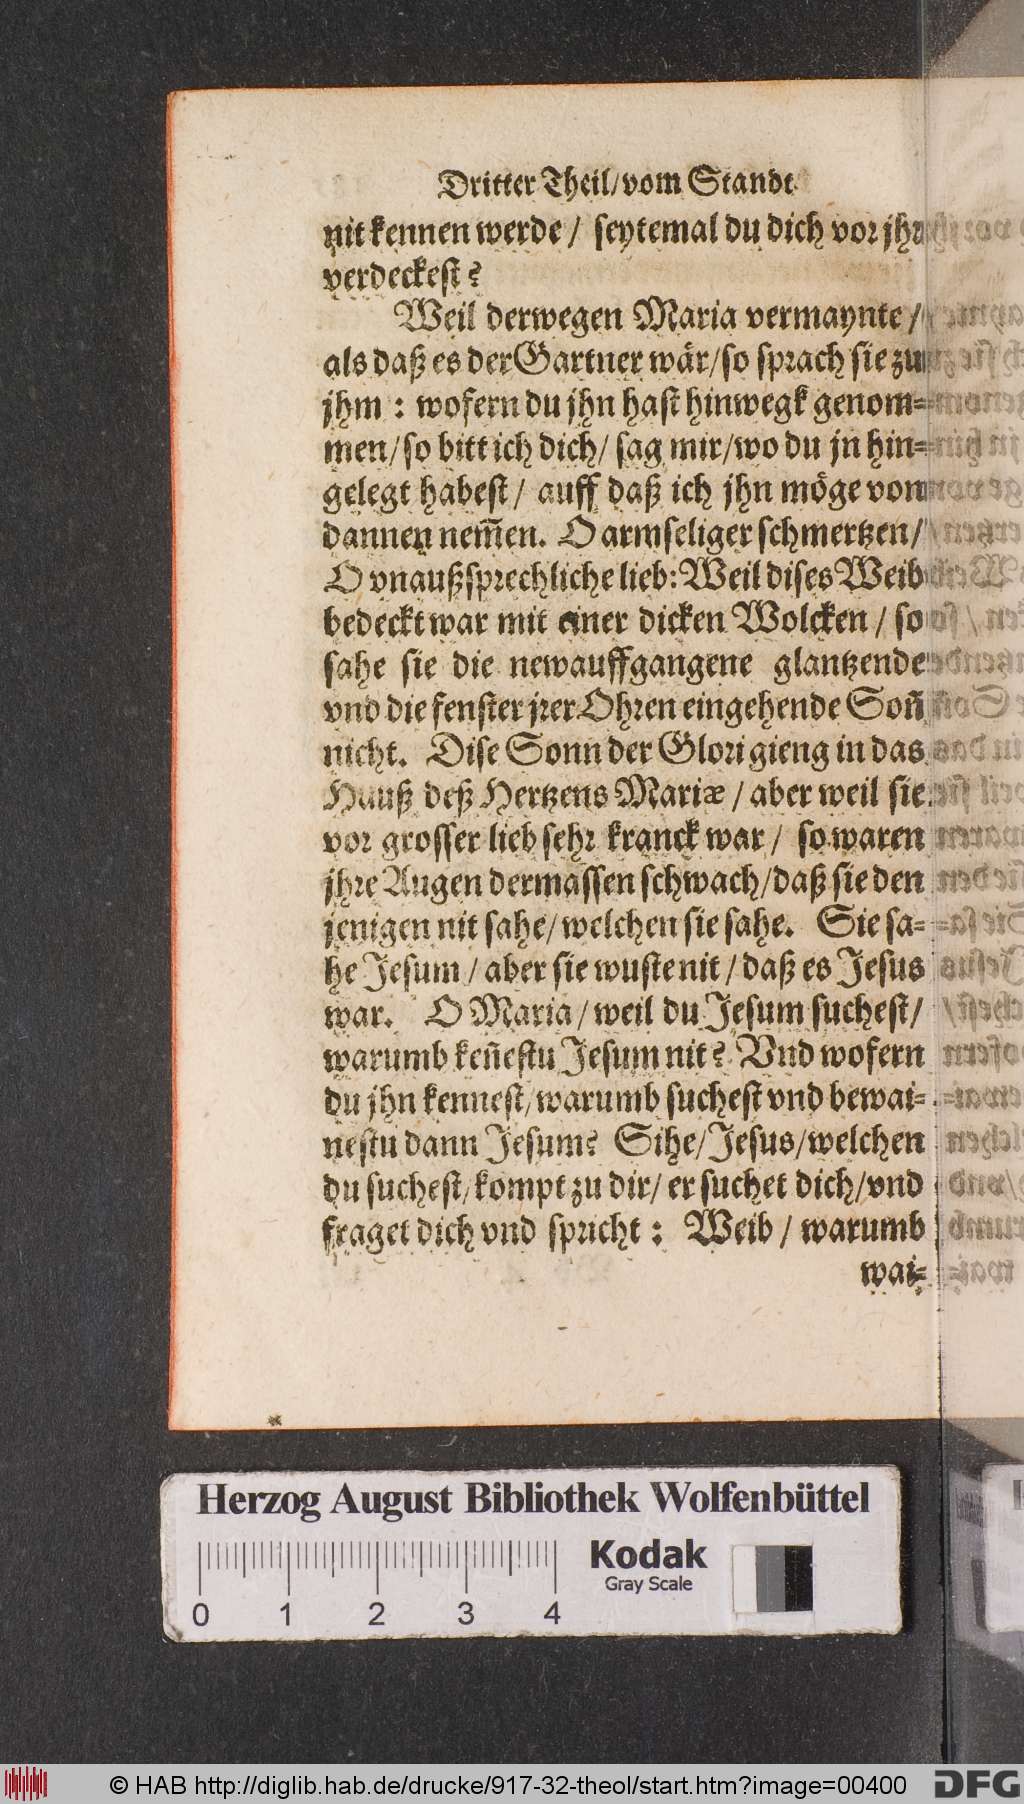 Dritter Theil/vom Standt
nit kennen werde / seytemal du dich vor jhr
verdeckest?
Weil derwegen Maria vermaynte /
als daß es der Gartner wär/so sprach sie zu
jhm : wofern du jhn hast hinwegk genom-
men/so bitt ich dich/ sag mir/wo du jn hin-
gelegt habest/ auff daß ich jhn möge von
dannen nem̃en. O armseliger schmertzen/
O vnaußsprechliche lieb: Weil dises Weib
bedeckt war mit einer dicken Wolcken / so
sahe sie die newauffgangene glantzende
vnd die fenster jrer Ohren eingehende Soñ
nicht. Dise Sonn der Glori gieng in das
Hauß deß Hertzens Mariæ / aber weil sie
vor grosser lieb sehr kranck war / so waren
jhre Augen dermassen schwach/daß sie den
jenigen nit sahe/ welchen sie sahe. Sie sa-
he Jesum / aber sie wuste nit / daß es Jesus
war. O Maria / weil du Jesum suchest/
warumb keñestu Jesum nit? Vnd wofern
du jhn kennest/warumb suchest vnd bewai-
nestu dann Jesum? Sihe/Jesus/welchen
du suchest/kompt zu dir/ er suchet dich/vnd
fraget dich vnd spricht : Weib / warumb
wai-
Herzog August Bibliothek Wolfenbüttel
Kodak
Gray Scale
0 1 2 3 4
© HAB http://diglib.hab.de/drucke/917-32-theol/start.htm?image=00400
DFG